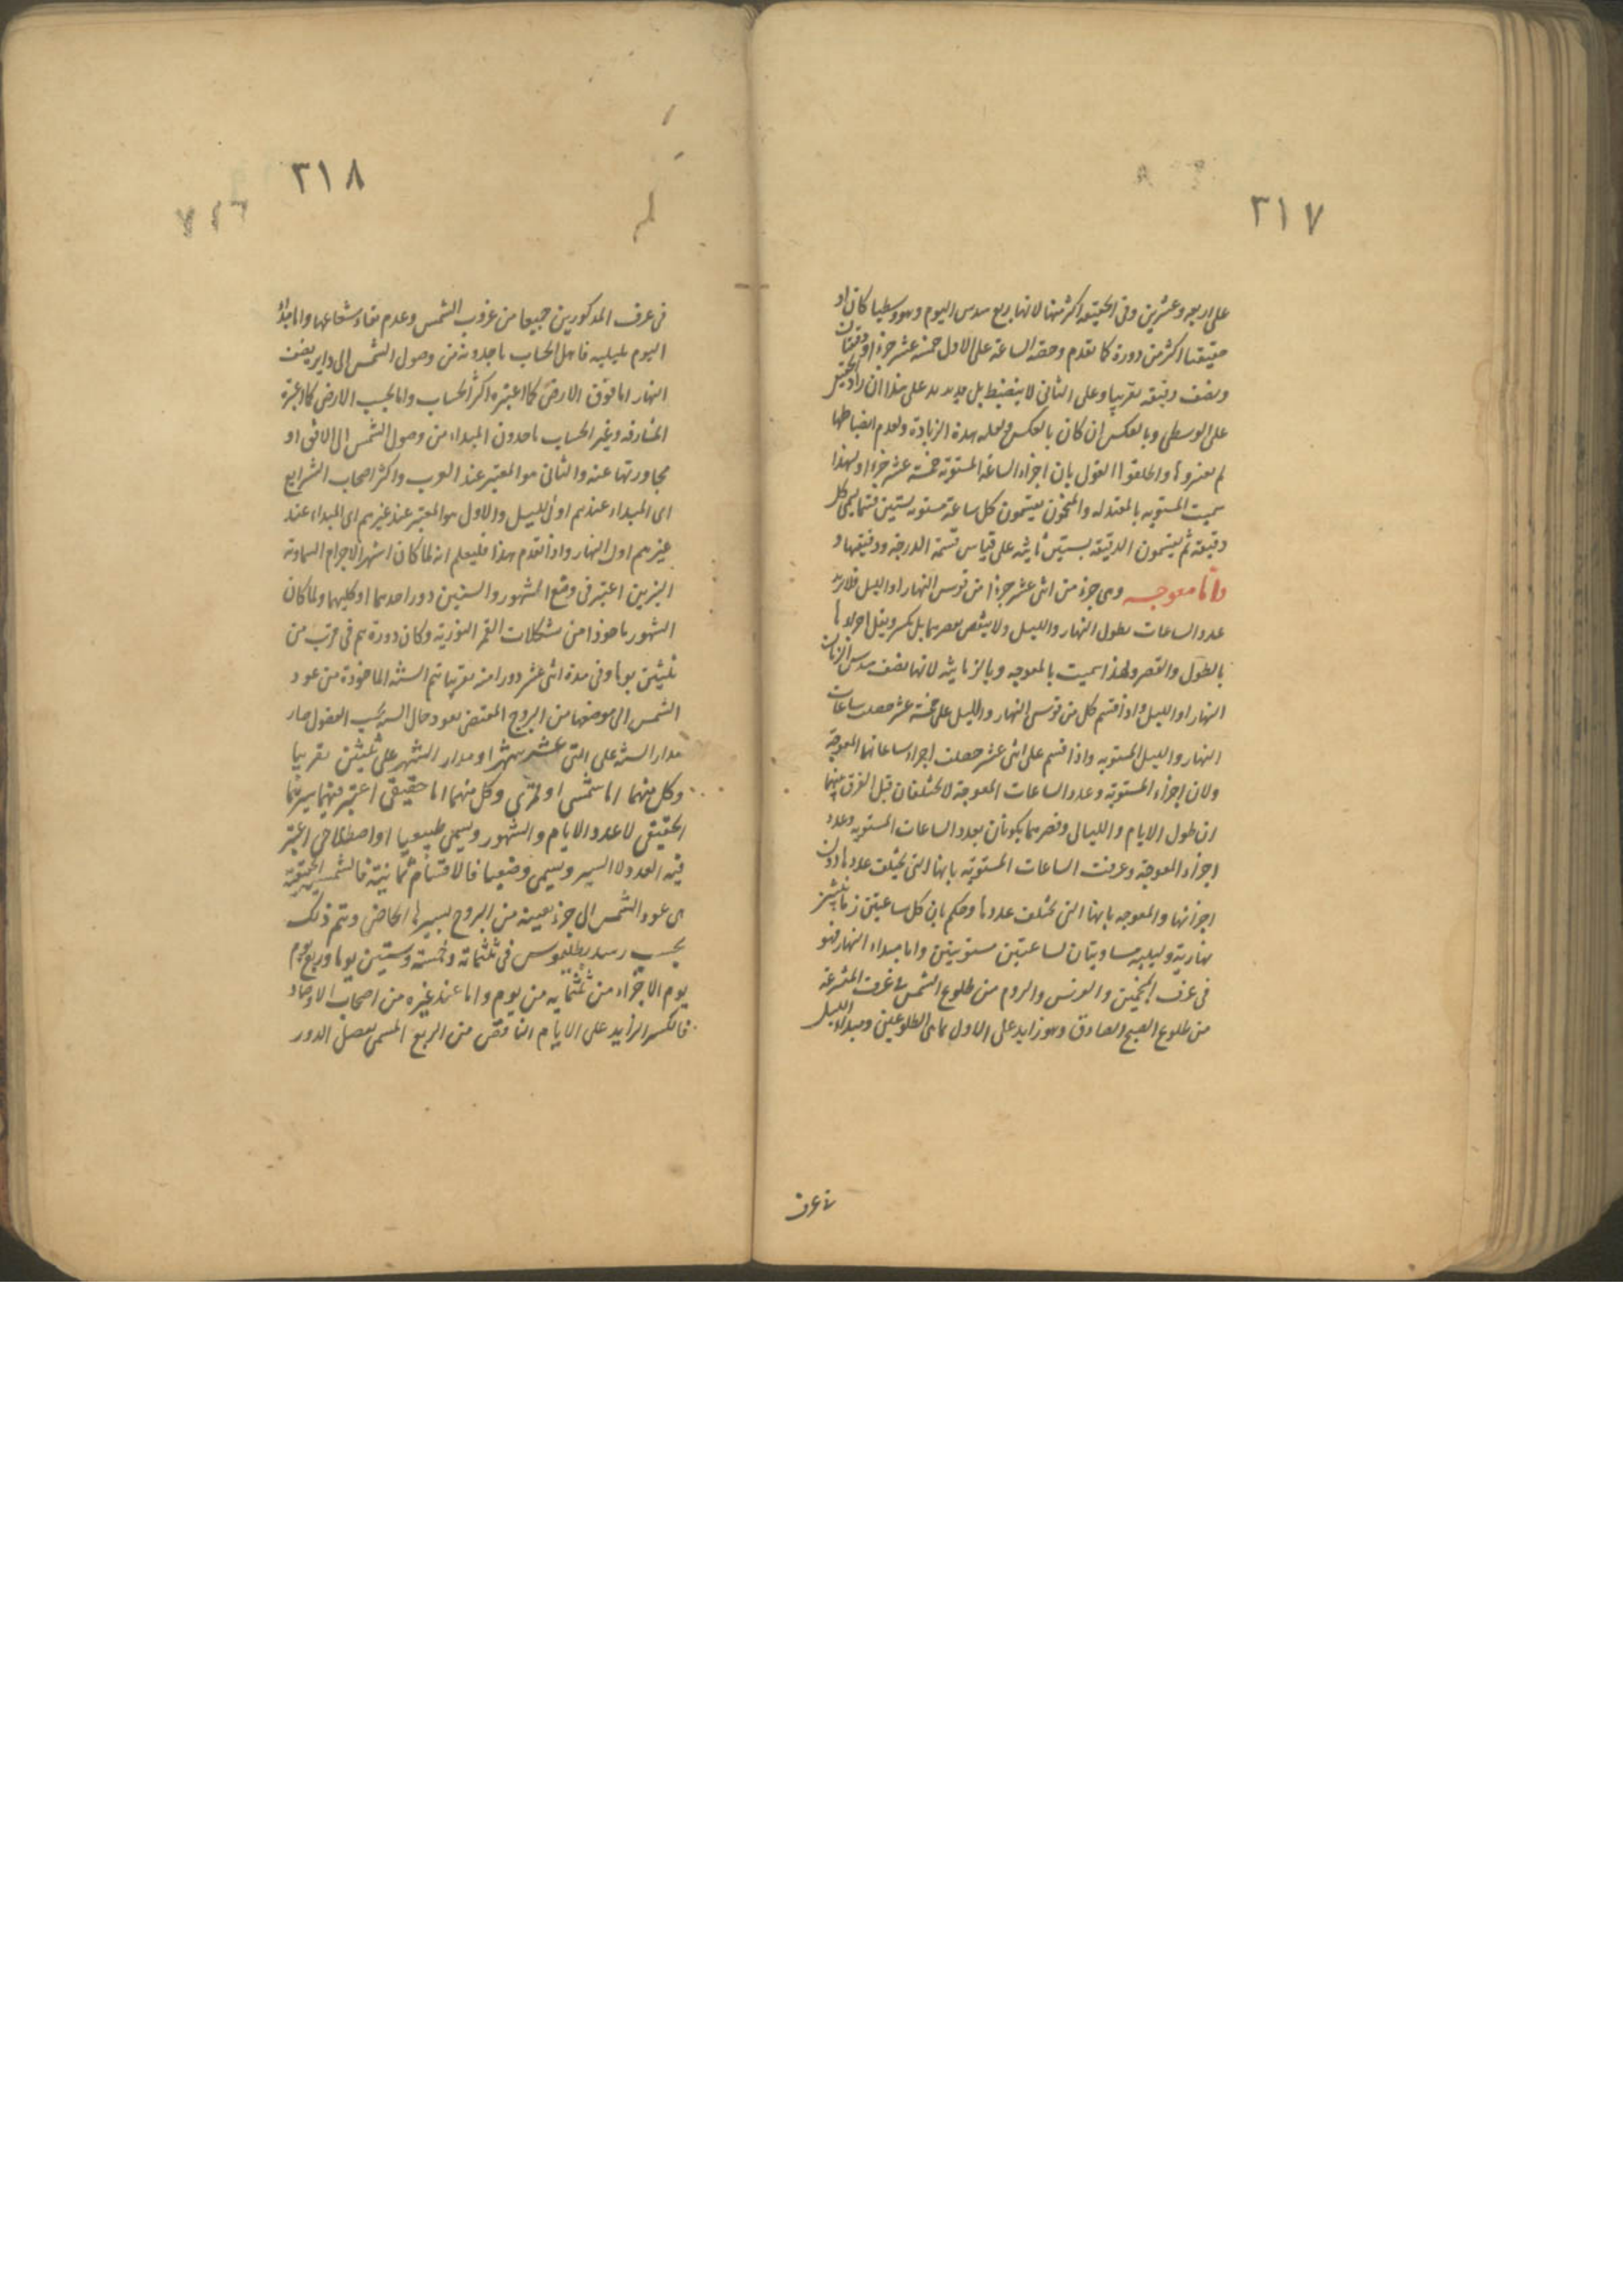 ٣١٧
على اربعة وعشرين وفى الحقيقة اكثر منها لانها ربع سدس اليوم وهو وسطيا كان او
حقيقيا اكثر من دورة كما تقدم وحصة الساعة على الاول خمسة عشر جزءا ودقيقتان
ونصف دقيقة تقريبا وعلى الثانى لا ينضبط بل يزيد على هذا ان زاد الحقيقى
على الوسطى وبالعكس ان كان بالعكس ولقلة هذه الزيادة ولعدم انضباطها
لم يعتبروها واطلقوا القول بان اجزاء الساعة المستوية خمسة عشر جزءا ولهذا
سميت المستوية بالمعتدلة والمنجمون يقسمون كل ساعة مستوية بستين قسما يسمى كل
دقيقة ثم يقسمون الدقيقة بستين ثانية على قياس قسمة الدرجة ودقيقها و
واما معوجة وهى جزء من اثنى عشر جزءا من قوس النهار او الليل فلا يزيد
عدد الساعات بطول النهار والليل ولا ينقص بقصرهما بل يكثر ويقل اجزاؤها
بالطول والقصر ولهذا سميت بالمعوجة وبالزمانية لانها نصف سدس الزمان
النهار او الليل واذا قسم كل من قوس النهار والليل على خمسة عشر حصلت ساعات
النهار والليل المستوية واذا قسم على اثنى عشر حصلت اجزاء ساعاتها المعوجة
ولان اجزاء المستوية وعدد الساعات المعوجة لا يختلفان قبل الفرق بينهما
ان طول الايام والليالى وقصرهما يكونان بعدد الساعات المستوية وعدد
اجزاء المعوجة وعرفت الساعات المستوية بانها التى يختلف عددها دون
اجزائها والمعوجة بانها التى تختلف عددها وحكم بان كل ساعتين زمانيتين
نهارية وليلية مساويتان لساعتين مستويتين واما مبداء النهار فهو
فى عرف المنجمين والفرس والروم من طلوع الشمس وفى عرف المتشرعة
من طلوع الصبح الصادق وهو زايد على الاول بما بين الطلوعين ومبداء الليل
فى عرف
٣١٨
فى عرف المذكورين جميعا من غروب الشمس وعدم بقاء شعاعها واما مبدأ
اليوم بليليه فاهل الحساب ياخذونه من وصول الشمس الى دايرة نصف
النهار اما فوق الارض كما اعتبره اكثر الحساب واما تحت الارض كما اعتبره
المشارقة وغير الحساب ياخذون المبداء من وصول الشمس الى الافق او
مجاوزتها عنه والثانى هو المعتبر عند العرب واكثر اصحاب الشرايع
اى المبداء عندهم اول الليل والاول هو المعتبر عند غيرهم اى المبداء عند
غيرهم اول النهار واذا تقدم هذا فليعلم انه لما كان اشهر الاجرام السماوية
النيرين اعتبر فى وضع الشهور والسنين دور احدهما او كليهما ولما كان
الشهور ماخوذا من تشكلات القمر النورية وكان دوره يتم فى قرب من
ثلثين يوما وفى مدة اثنى عشر دورا منه تقريبا تتم السنة الماخوذة من عود
الشمس الى موضعها من البروج المقتضى لعود حال السنة بحسب الفصول صار
مدار السنة على اثنى عشر شهرا ومدار الشهر على ثلثين تقريبا
وكل منهما اما شمسى او قمرى وكل منهما اما حقيقى اعتبر فيهما سيرهما
الحقيقى لا عدد الايام والشهور ويسمى طبيعيا او اصطلاحى اعتبر
فيه العدد لا السير ويسمى وضعيا فالاقسام ثمانية فالشمسية الحقيقية
هى عود الشمس الى جزء بعينه من البروج بسيرها الخاص ويتم ذلك
بحسب رصد بطلميوس فى ثلثمائة وخمسة وستين يوما وربع يوم
يوم الا جزءا من ثلثمايه من يوم واما عند غيره من اصحاب الارصاد
فالكسر الزايد على الايام الناقص من الربع المسمى بفضل الدور